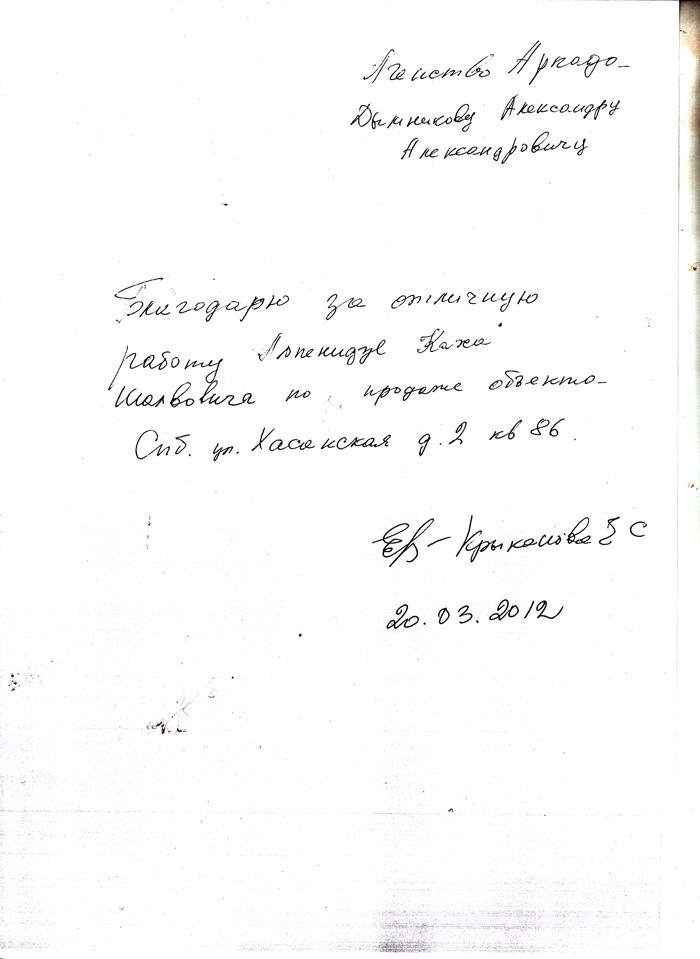 Агенство Аркадо-
Дымникову Александру
Александровичу
Благодарю за отличную
работу Лопенидзе Каха
Шалвовича по продаже объекта-
Спб. ул. Хасанская д. 2 кв 86.
Крыканова Е С
20.03.2012